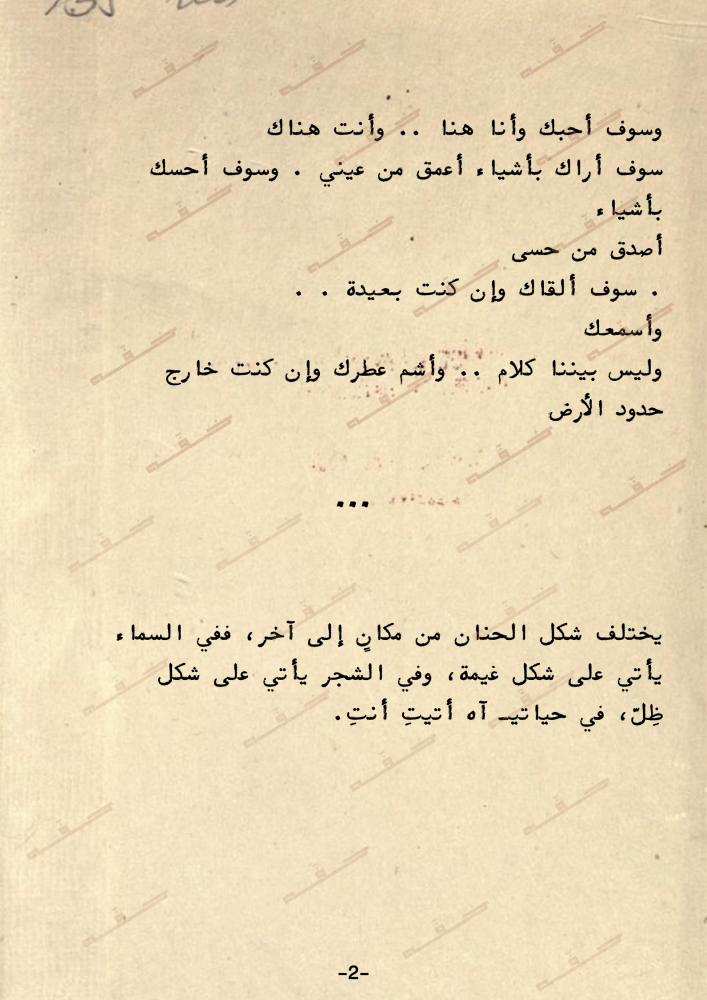 وسوف أحبك وأنا هنا .. وأنت هناك
سوف أراك بأشياء أعمق من عيني . وسوف أحسك
بأشياء
أصدق من حسى
. سوف ألقاك وإن كنت بعيدة . .
وأسمعك
وليس بيننا كلام .. وأشم عطرك وإن كنت خارج
حدود الأرض
...
يختلف شكل الحنان من مكانٍ إلى آخر، ففي السماء
يأتي على شكل غيمة، وفي الشجر يأتي على شكل
ظِلّ، في حياتيـ آه أتيتِ أنتِ.
-2-